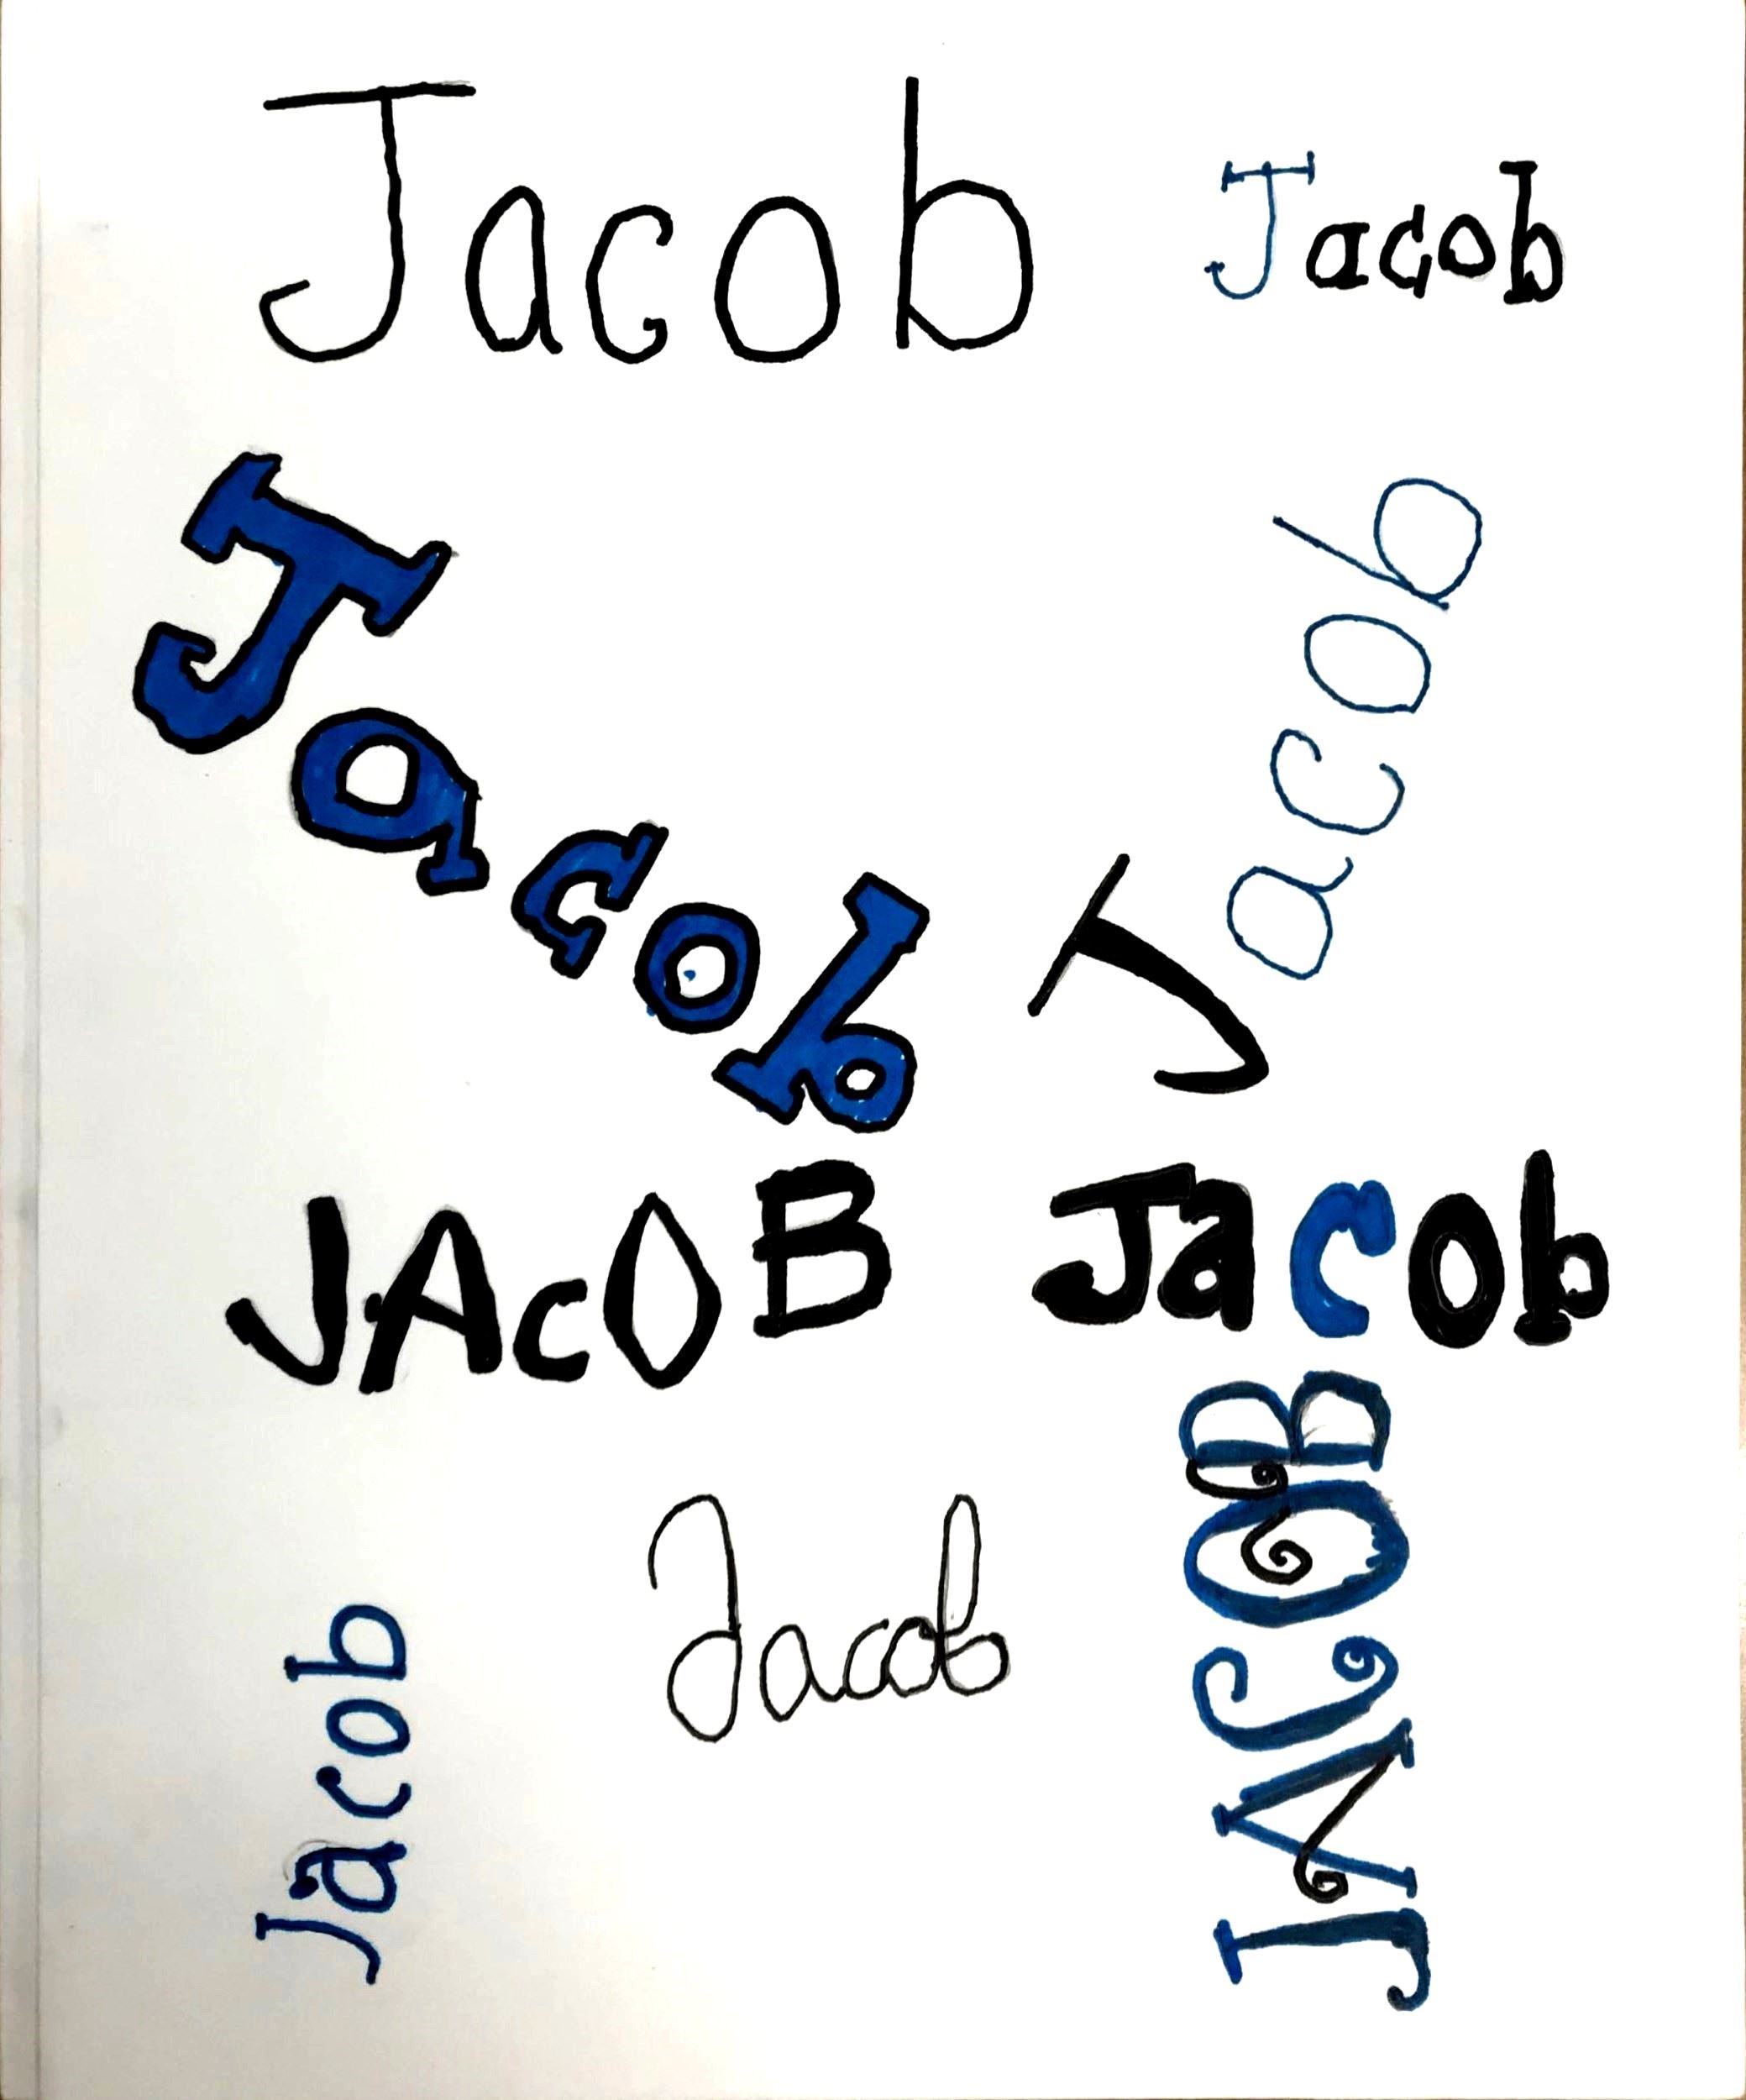 Jacob
Jacob
Jacob
Jacob
JAcOB
Jacob
Jacob
Jacob
JACOB